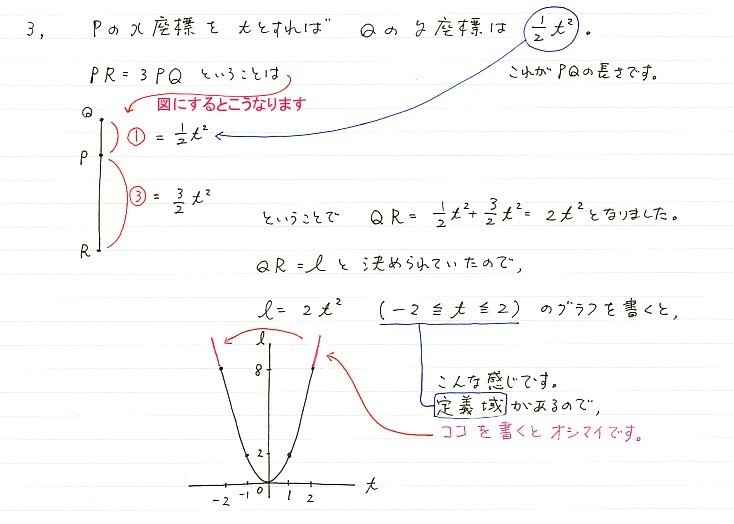 3, Pのx座標をtとすれば Qのy座標は 1/2 t²。
PR=3PQ ということは
これがPQの長さです。
図にするとこうなります
Q
① = 1/2 t²
P
③ = 3/2 t²
ということで QR = 1/2 t² + 3/2 t² = 2t² となりました。
R
QR=ℓ と決められていたので,
ℓ = 2t² (-2 ≦ t ≦ 2) のグラフを書くと,
ℓ
8
こんな感じです。
定義域があるので,
ココを書くとオシマイです。
2
0
t
-2 -1 1 2